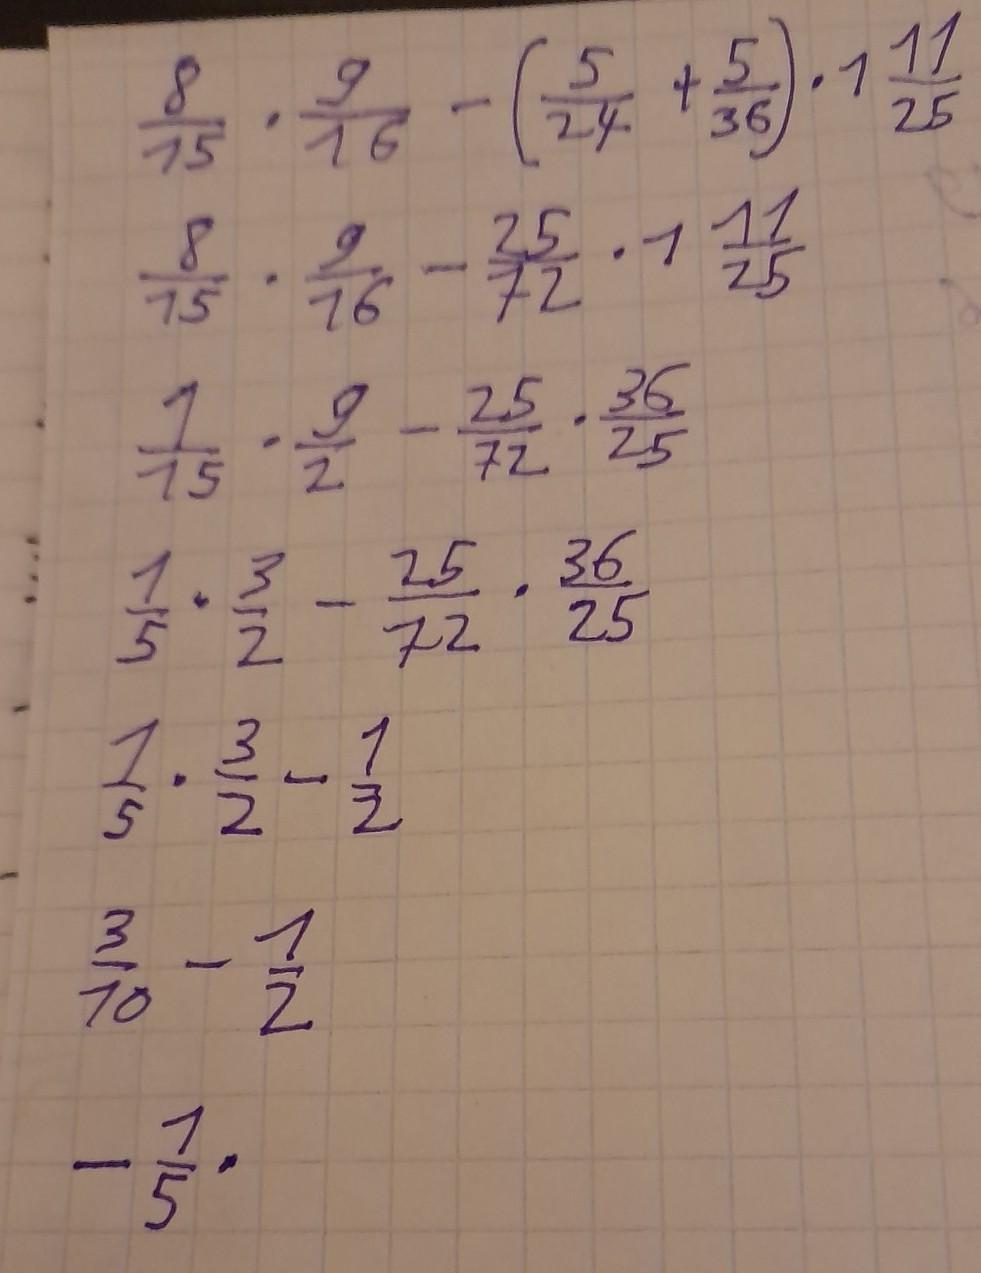 8/15 · 9/16 - (5/24 + 5/36) · 1 11/25
8/15 · 9/16 - 25/72 · 1 11/25
1/15 · 9/2 - 25/72 · 36/25
1/5 · 3/2 - 25/72 · 36/25
1/5 · 3/2 - 1/2
3/10 - 1/2
- 1/5 .